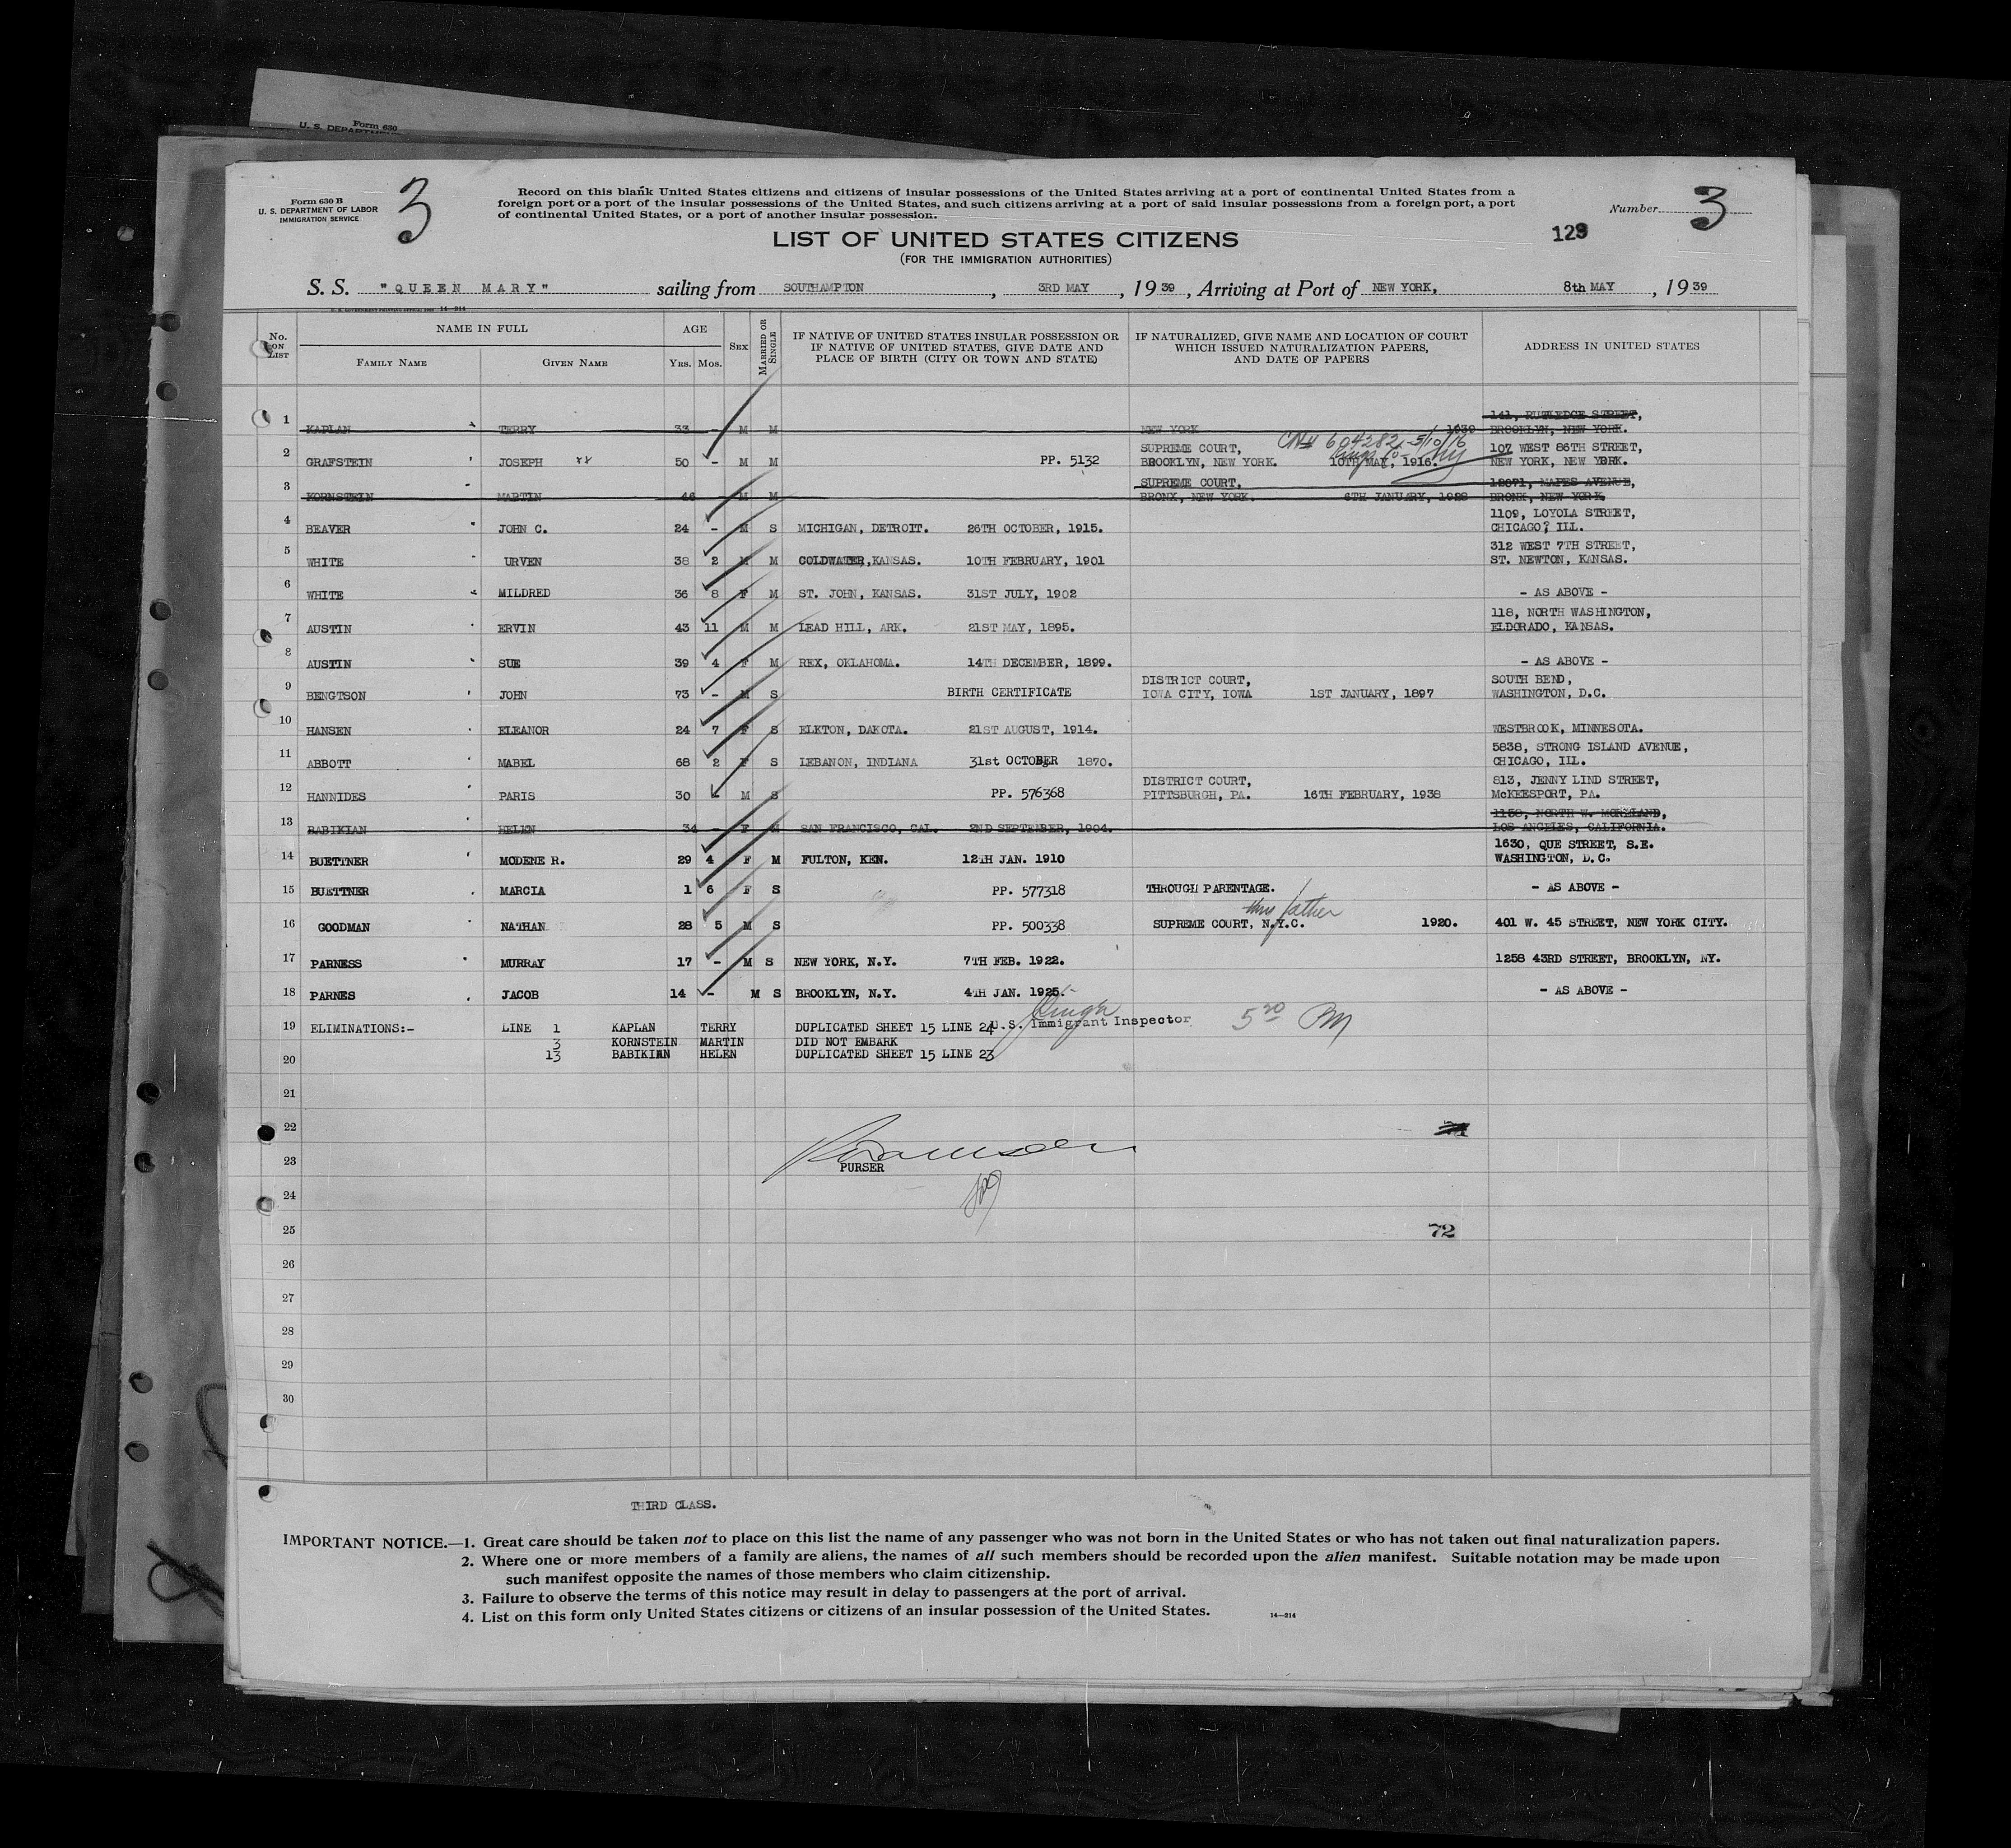 Form 630
U. S. DEPARTMENT
Form 630 B
U. S. DEPARTMENT OF LABOR
IMMIGRATION SERVICE
3
Record on this blank United States citizens and citizens of insular possessions of the United States arriving at a port of continental United States from a
foreign port or a port of the insular possessions of the United States, and such citizens arriving at a port of said insular possessions from a foreign port, a port
of continental United States, or a port of another insular possession.
Number 3
LIST OF UNITED STATES CITIZENS
(FOR THE IMMIGRATION AUTHORITIES)
129
S. S. "QUEEN MARY" sailing from SOUTHAMPTON , 3RD MAY , 1939 , Arriving at Port of NEW YORK, 8th MAY , 1939
14—214
No. ON LIST
NAME IN FULL
FAMILY NAME GIVEN NAME
AGE
YRS. MOS.
SEX
MARRIED OR SINGLE
IF NATIVE OF UNITED STATES INSULAR POSSESSION OR
IF NATIVE OF UNITED STATES, GIVE DATE AND
PLACE OF BIRTH (CITY OR TOWN AND STATE)
IF NATURALIZED, GIVE NAME AND LOCATION OF COURT
WHICH ISSUED NATURALIZATION PAPERS,
AND DATE OF PAPERS
ADDRESS IN UNITED STATES
141, RUTLEDGE STREET,
1 KAPLAN TERRY 33 - M M NEW YORK 1930 BROOKLYN, NEW YORK.
CN# 604282-5/10/16
SUPREME COURT, 107 WEST 86TH STREET,
2 GRAFSTEIN JOSEPH 50 - M M PP. 5132 BROOKLYN, NEW YORK. 10TH MAY, 1916. NEW YORK, NEW YORK.
SUPREME COURT, MAPES AVENUE,
3 KORNSTEIN MARTIN 46 M M BRONX, NEW YORK. 6TH JANUARY, 1928 BRONX, NEW YORK.
1109, LOYOLA STREET,
4 BEAVER JOHN C. 24 - M S MICHIGAN, DETROIT. 26TH OCTOBER, 1915. CHICAGO? ILL.
312 WEST 7TH STREET,
5 WHITE URVEN 38 2 M M COLDWATER, KANSAS. 10TH FEBRUARY, 1901 ST. NEWTON, KANSAS.
6 WHITE MILDRED 36 8 F M ST. JOHN, KANSAS. 31ST JULY, 1902 - AS ABOVE -
118, NORTH WASHINGTON,
7 AUSTIN ERVIN 43 11 M M LEAD HILL, ARK. 21ST MAY, 1895. ELDORADO, KANSAS.
8 AUSTIN SUE 39 4 F M REX, OKLAHOMA. 14TH DECEMBER, 1899. - AS ABOVE -
DISTRICT COURT, SOUTH BEND,
9 BENGTSON JOHN 73 - M S BIRTH CERTIFICATE IOWA CITY, IOWA 1ST JANUARY, 1897 WASHINGTON, D.C.
10 HANSEN ELEANOR 24 7 F S ELKTON, DAKOTA. 21ST AUGUST, 1914. WESTBROOK, MINNESOTA.
5838, STRONG ISLAND AVENUE,
11 ABBOTT MABEL 68 2 F S LEBANON, INDIANA 31st OCTOBER 1870. CHICAGO, ILL.
DISTRICT COURT, 813, JENNY LIND STREET,
12 HANNIDES PARIS 30 - M S PP. 576368 PITTSBURGH, PA. 16TH FEBRUARY, 1938 McKEESPORT, PA.
1158, NORTH W. MORELAND,
13 BABIKIAN HELEN 34 - F M SAN FRANCISCO, CAL. 2ND SEPTEMBER, 1904. LOS ANGELES, CALIFORNIA.
1630, QUE STREET, S.E.
14 BUETTNER MODENE R. 29 4 F M FULTON, KEN. 12TH JAN. 1910 WASHINGTON, D.C.
15 BUETTNER MARCIA 1 6 F S PP. 577318 THROUGH PARENTAGE. - AS ABOVE -
thru father
16 GOODMAN NATHAN 28 5 M S PP. 500338 SUPREME COURT, N.Y.C. 1920. 401 W. 45 STREET, NEW YORK CITY.
17 PARNESS MURRAY 17 - M S NEW YORK, N.Y. 7TH FEB. 1922. 1258 43RD STREET, BROOKLYN, NY.
18 PARNES JACOB 14 - M S BROOKLYN, N.Y. 4TH JAN. 1925. - AS ABOVE -
19 ELIMINATIONS:- LINE 1 KAPLAN TERRY DUPLICATED SHEET 15 LINE 24 U.S. Immigrant Inspector 5 20 PM
3 KORNSTEIN MARTIN DID NOT EMBARK
20 13 BABIKIAN HELEN DUPLICATED SHEET 15 LINE 23
21
22
23 PURSER
24
25 72
26
27
28
29
30
THIRD CLASS.
IMPORTANT NOTICE.—1. Great care should be taken not to place on this list the name of any passenger who was not born in the United States or who has not taken out final naturalization papers.
2. Where one or more members of a family are aliens, the names of all such members should be recorded upon the alien manifest. Suitable notation may be made upon
such manifest opposite the names of those members who claim citizenship.
3. Failure to observe the terms of this notice may result in delay to passengers at the port of arrival.
4. List on this form only United States citizens or citizens of an insular possession of the United States.
14—214